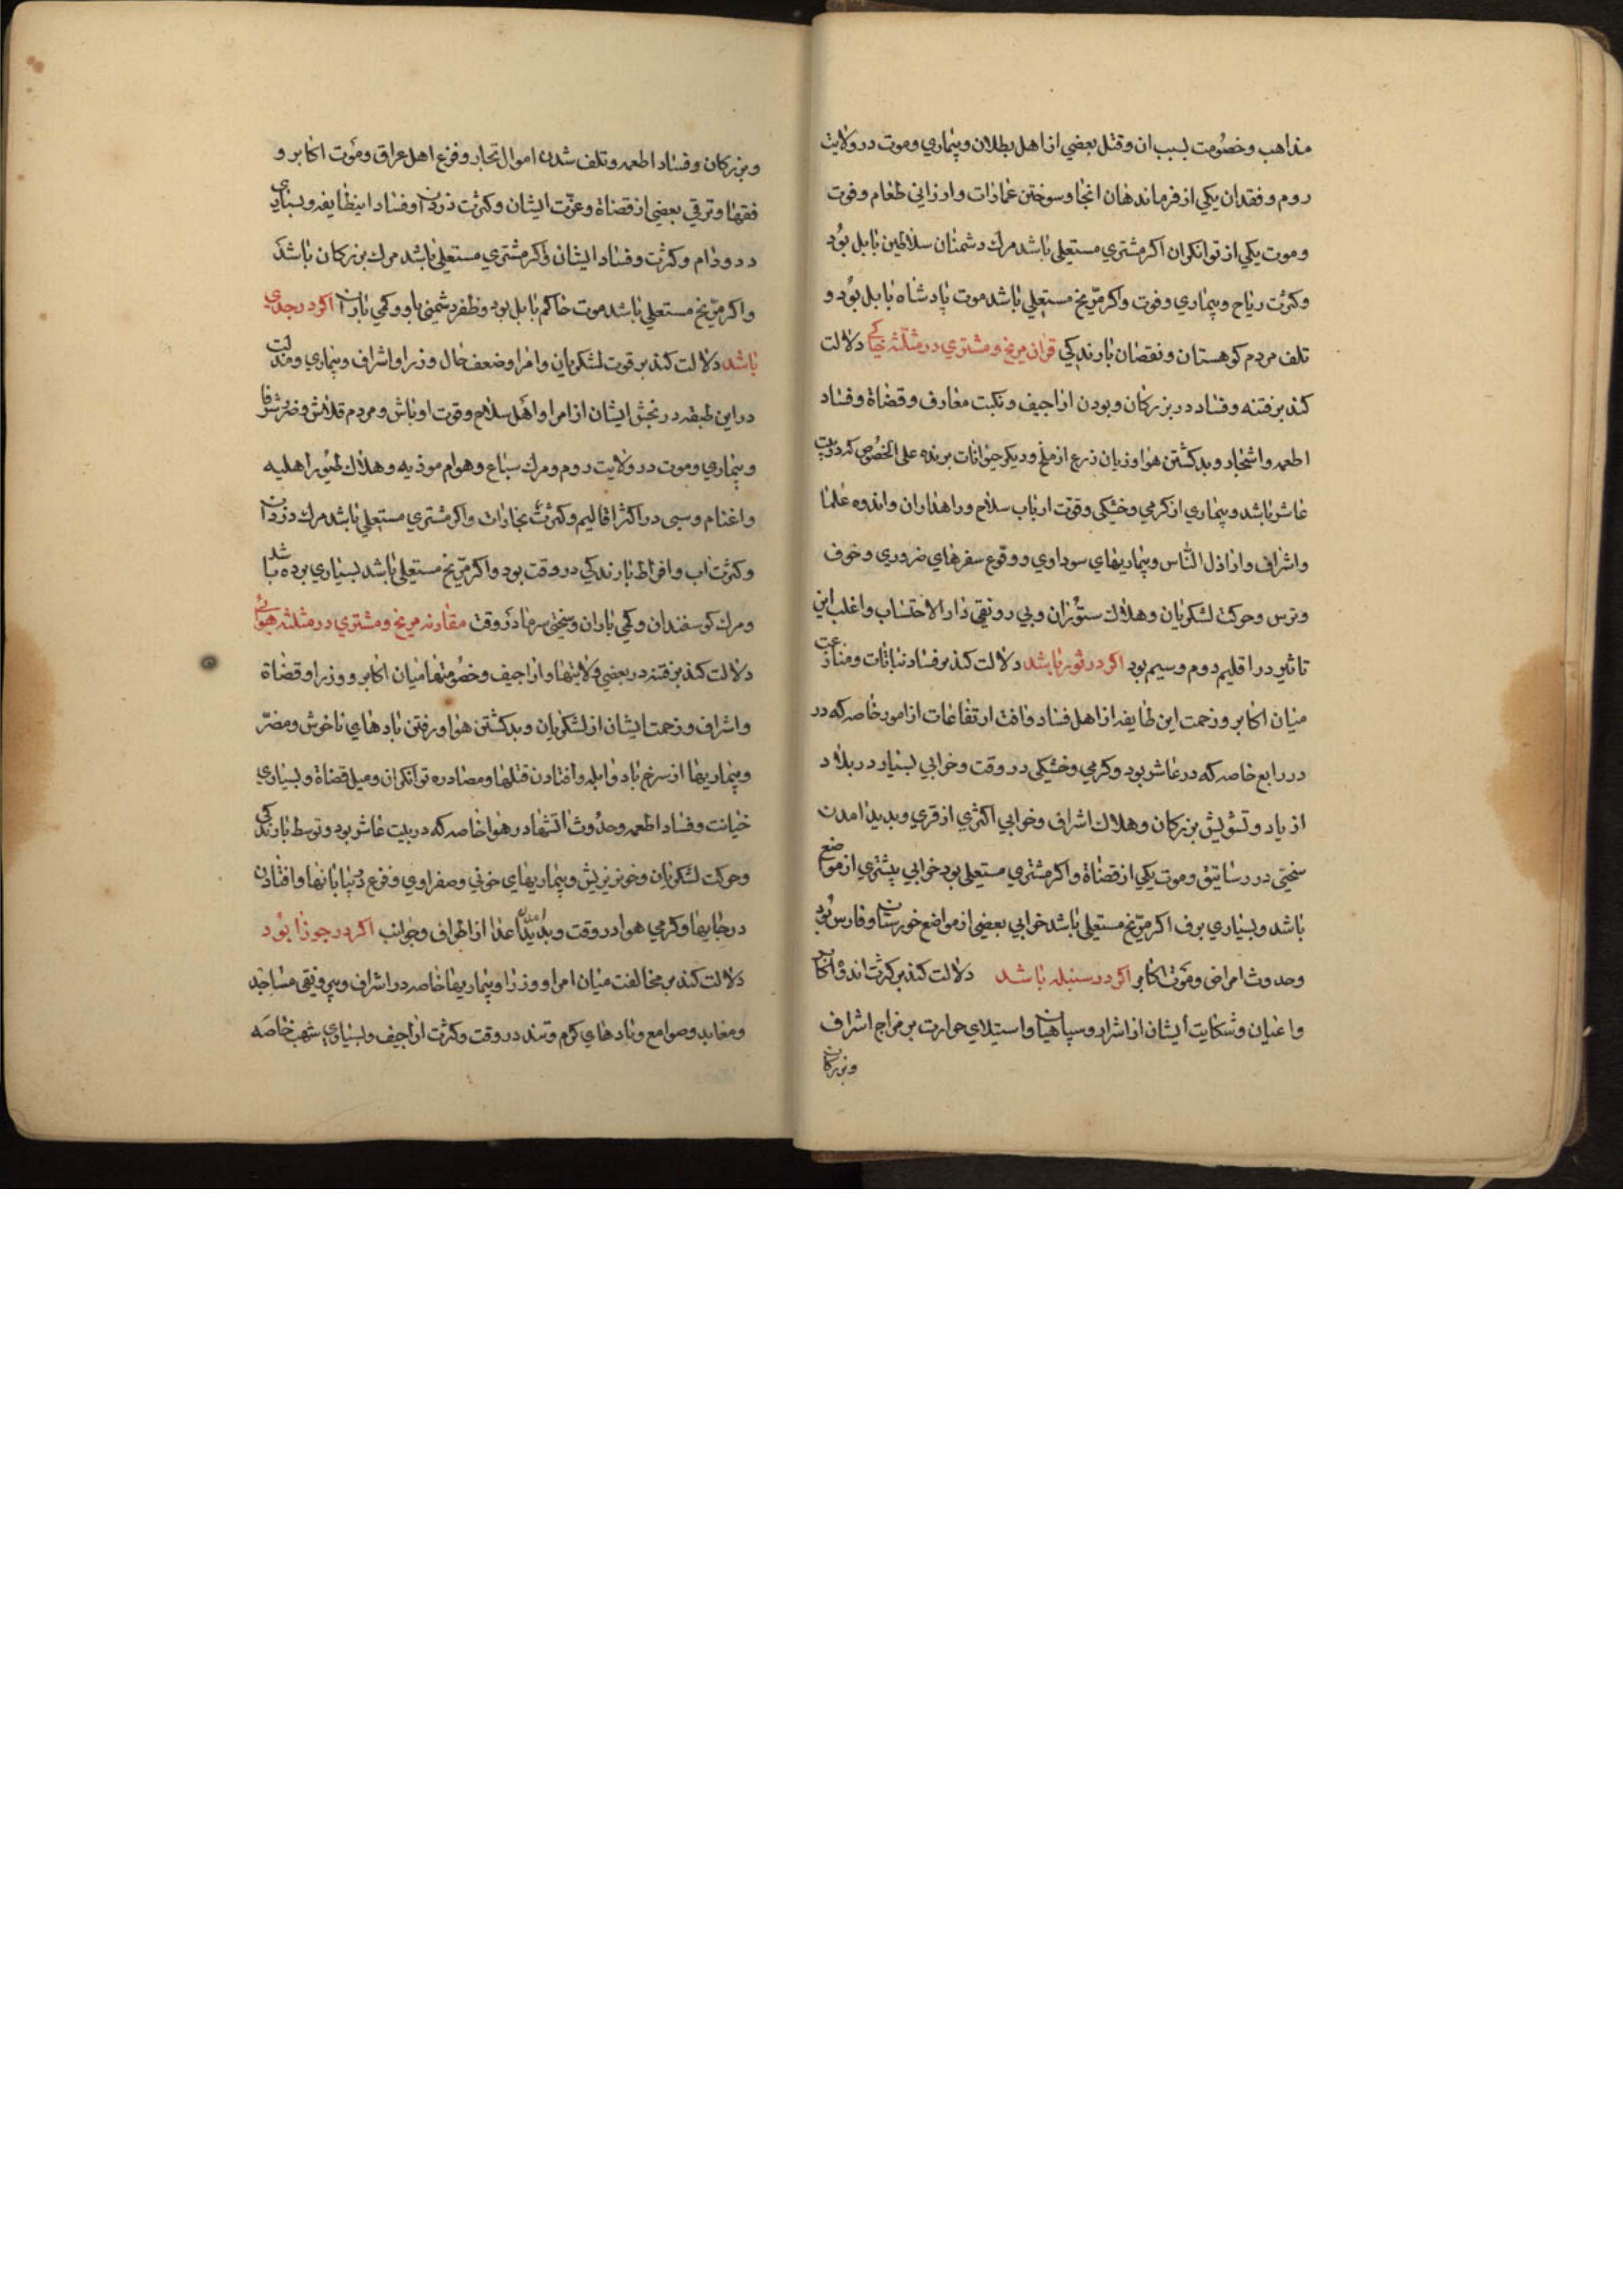 مذاهب وخصومت بسبب ان وقتل بعضي از اهل بطلان وبيماري وموت در ولايت
روم وفقدان يكي از فرماندهان انجا وسوختن عمارات وارزاني طعام وفوت
وموت يكي از توانكران اكر مشتري مستعلي باشد مرك دشمنان سلاطين بابل بود
وكثرت رياح وبيماري وفوت واكر مريخ مستعلي باشد موت پادشاه بابل بود و
تلف مردم كوهستان ونقصان بارندكي قران مريخ ومشتري در مثلثه خاكي دلالت
كند بر فتنه وفساد در بزركان وبودن اراجيف ونكبت معارف وقضاة وفساد
اطعمه واشجار وبد كشتن هوا وزيان زرع از ملخ وديكر حيوانات پرنده علي الخصوص كه در بيت
عاشر باشد وبيماري از كرمي وخشكي وقوت ارباب سلاح وراهداران واندوه علما
واشراف واراذل الناس وبيماريهاي سوداوي ووقوع سفرهاي ضروري وخوف
وترس وحركت لشكريان وهلاك ستوران وبي رونقي دار الاحتساب واغلب اين
تاثير در اقليم دوم وسيم بود اكر در ثور باشد دلالت كند بر فساد نباتات ومنازعت
ميان اكابر وزحمت اين طايفه از اهل فساد وافت ارتفاعات از امور خاصه كه در
در رابع خاصه كه در عاشر بود وكرمي وخشكي در وقت وخرابي بسيار در بلاد
ازياد وتشويش بزركان وهلاك اشراف وخرابي اكثري از قري وبديد امدن
سختي در رساتيق وموت يكي از قضاة واكر مشتري مستعلي بود خرابي بيشتري از مواضع
باشد وبسياري برف اكر مريخ مستعلي باشد خرابي بعضي از مواضع خورستان وفارس بود
وحدوث امراض وموت اكابر اكر در سنبله باشد دلالت كند بر كثرت اندوه اكابر
واعيان وشكايت ايشان از اشرار وسپاهيان واستيلاي حرارت بر مزاج اشراف
وبزركان
وبزركان وفساد اطعمه وتلف شدن اموال تجار وفزع اهل عراق وموت اكابر و
فقها وترقي بعضي از قضاة وعزت ايشان وكثرت دزدان وفساد اينطايفه وبسياري
دد ودام وكثرت وفساد ايشان واكر مشتري مستعلي باشد مرك بزركان باشد
واكر مريخ مستعلي باشد موت حاكم بابل بود وظفر دشمني باو وكمي باران اكر در جدي
باشد دلالت كند بر قوت لشكريان وامرا وضعف حال وزرا واشراف وبيماري ومذلت
در اين طبقه ورنجش ايشان از امرا واهل سلاح وقوت اوباش ومردم قلاش وضرب شرفا
وبيماري وموت در ولايت روم ومرك سباع وهوام موذيه وهلاك طيور اهليه
واغنام وسبي در اكثر اقاليم وكثرت بخارات واكر مشتري مستعلي باشد مرك دزدان
وكثرت اب وافراط بارندكي در وقت بود واكر مريخ مستعلي باشد بسياري برده باشد
ومرك كوسفندان وكمي باران وسختي سرما در وقت مقارنه مريخ ومشتري در مثلثه هوائي
دلالت كند بر فتنه در بعضي ولايتها واراجيف وخصومتها ميان اكابر ووزرا وقضاة
واشراف وزحمت ايشان از لشكريان وبد كشتن هوا ورفتن بادهاي ناخوش ومضر
وبيماريها از سرخ باد وابله وافتادن قتلها ومصادره توانكران وميل قضاة وبسياري
خيانت وفساد اطعمه وحدوث اتشها در هوا خاصه كه در بيت عاشر بود وتوسط بارندكي
وحركت لشكريان وخونريزش وبيماريهاي خوني وصفراوي وفزع در بيابانها وافتادن
در جايها وكرمي هوا در وقت وبديد امدن اعدا از اطراف وجوانب اكر در جوزا بود
دلالت كند بر مخالفت ميان امرا ووزرا وبيماريها خاصه در اشراف وبيرونقي مساجد
ومعابد وصوامع وبادهاي كرم وتند در وقت وكثرت اراجيف وبسياري شهب خاصه